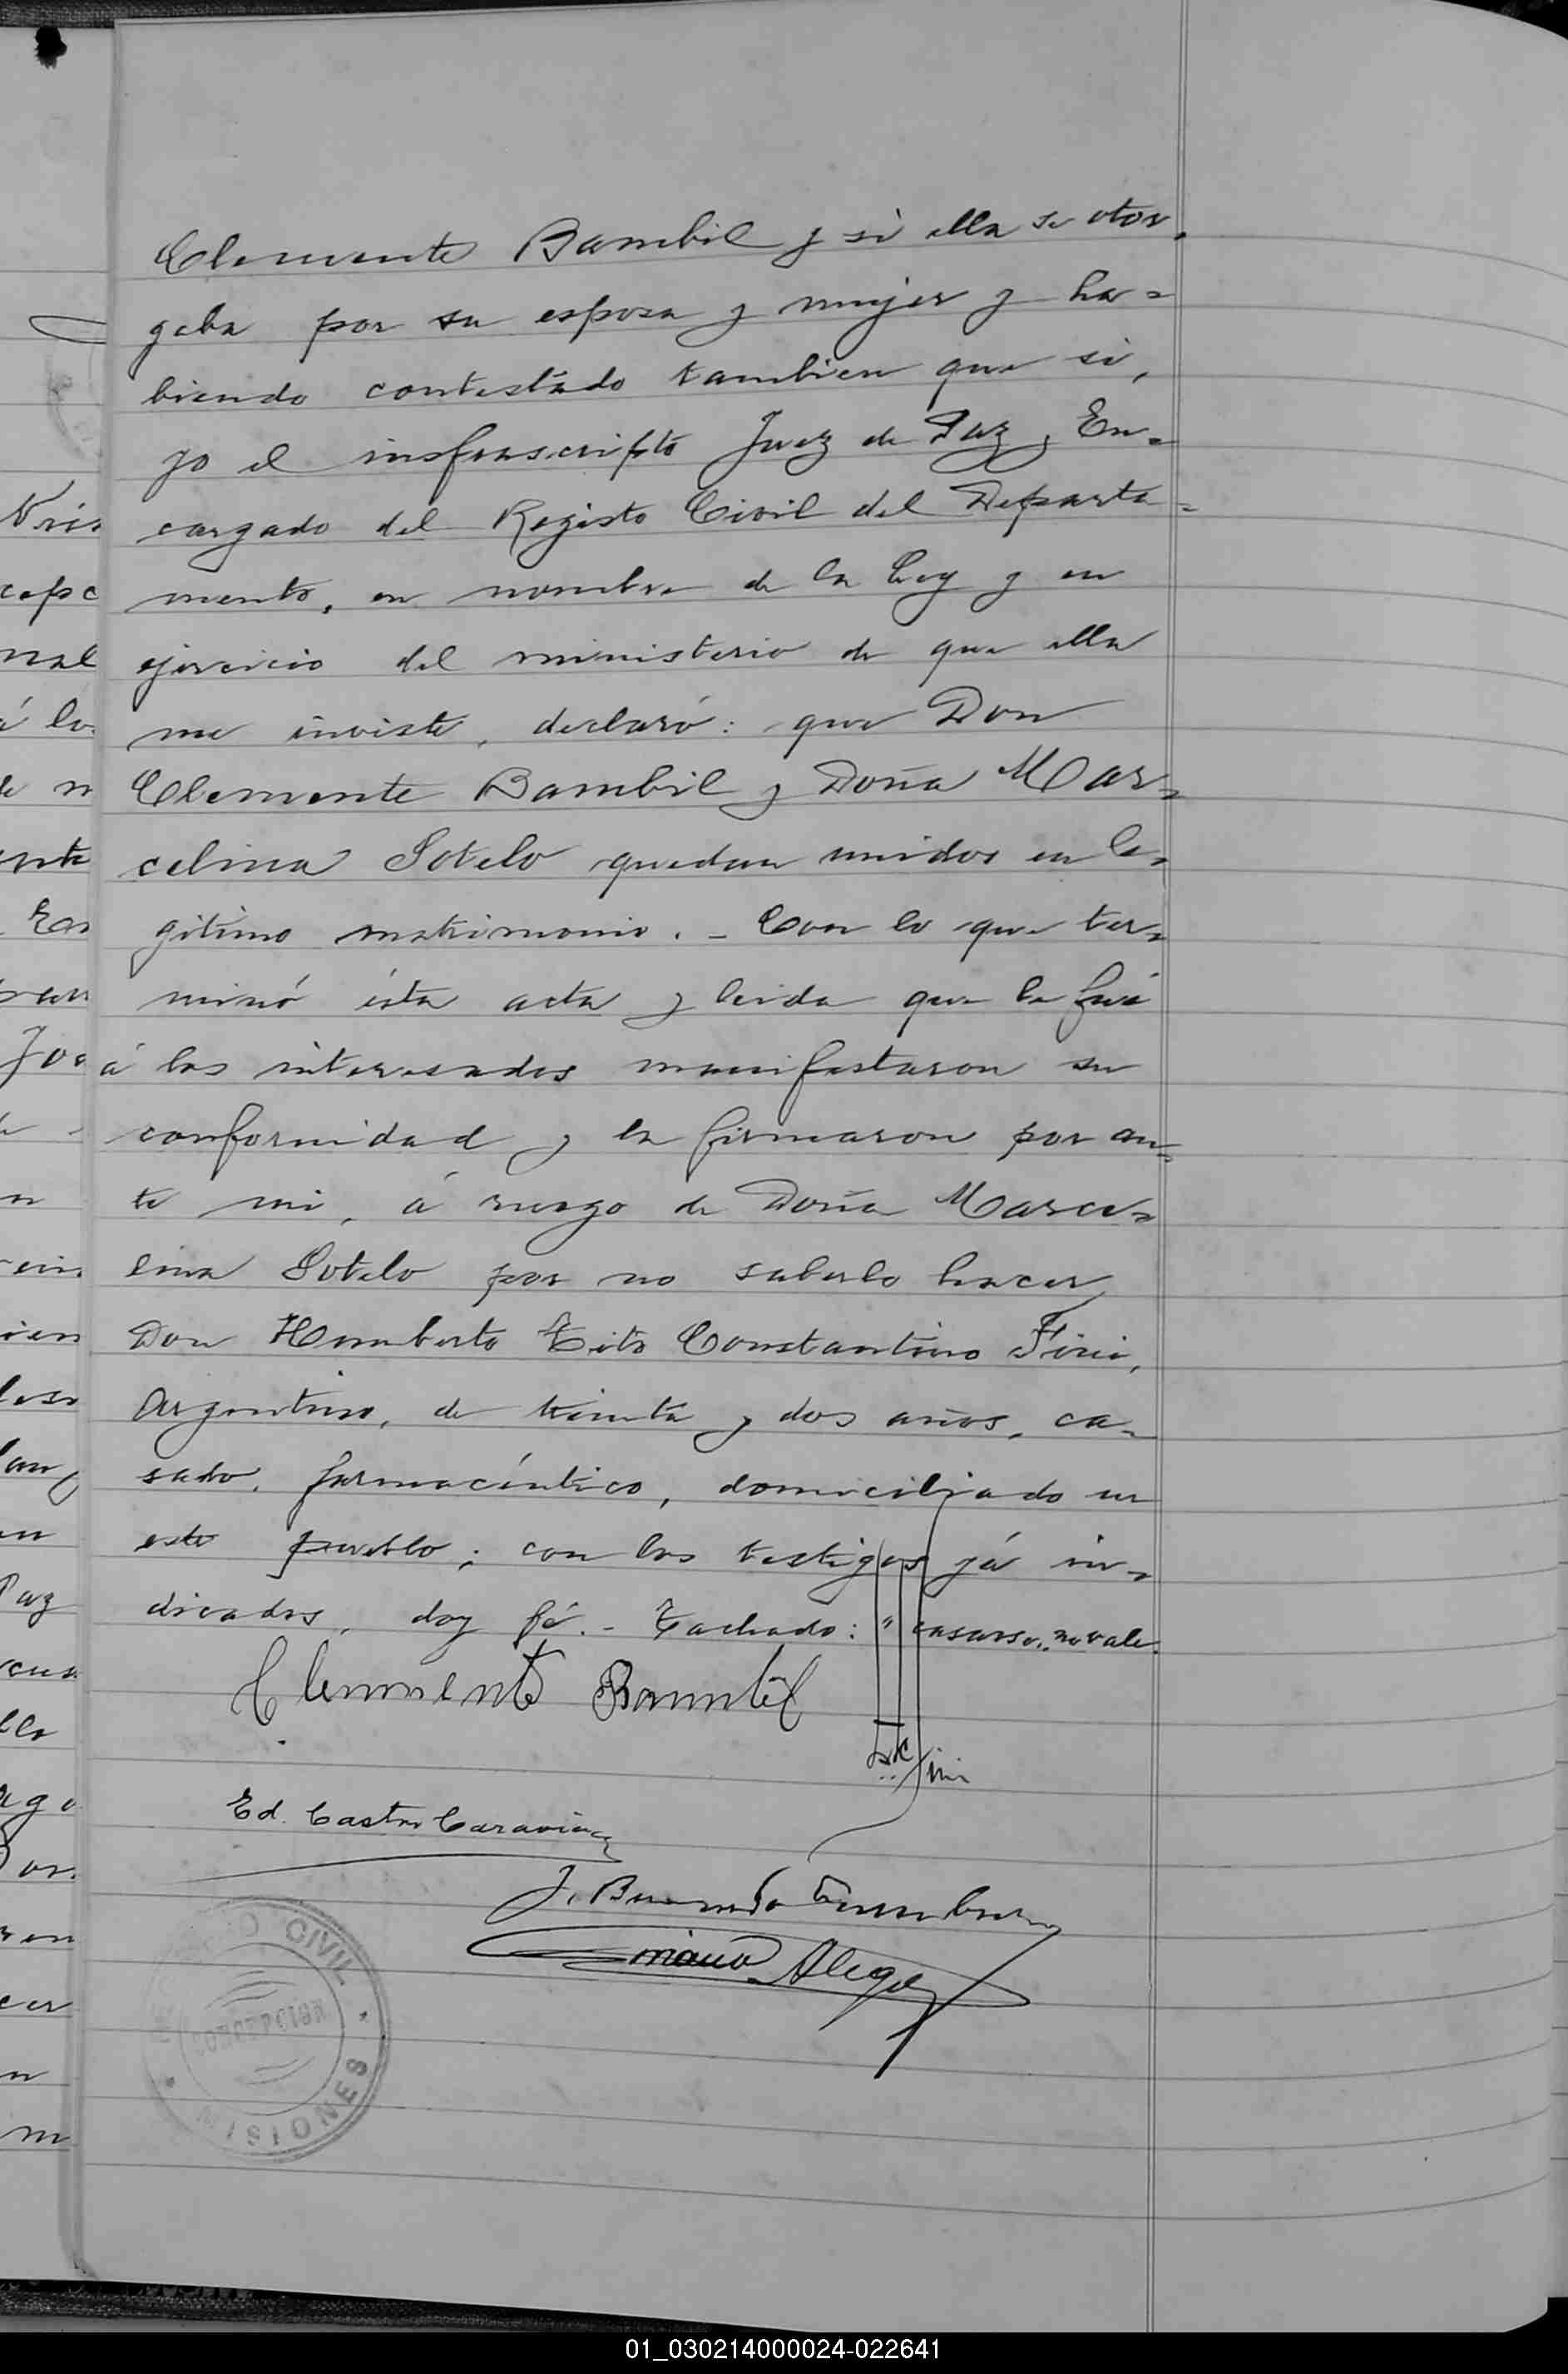 Clemente Bambil y si ella se otor-
gaba por su esposa y mujer y ha=
biendo contestado tambien que si,
yo el insfrascripto Juez de Paz, En=
cargado del Registo Civil del Departa=
mento, en nombre de la Ley y en
ejercicio del ministerio de que ella
me inviste, declaró: que Don
Clemente Bambil y Doña Mar=
celina Sotelo quedan unidos en le=
gitimo matrimonio. - Con lo que ter=
minó ésta acta y leida que le fué
á los interesados manifestaron su
conformidad y la firmaron por an=
te mi, á ruego de Doña Marce=
lina Sotelo por no saberlo hacer
Don Humberto Tito Constantino Fini,
Argentino, de treinta y dos años, ca=
sado, farmacéutico, domiciliado en
este pueblo; con los testigos já in=
dicados, doy fé. - Tachado: "casarse" no vale.
Clemente Bambil
Fini
Ed. Castro
J.
Alegre
REGISTRO CIVIL
CONCEPCION
MISIONES
Paz
01_030214000024-022641